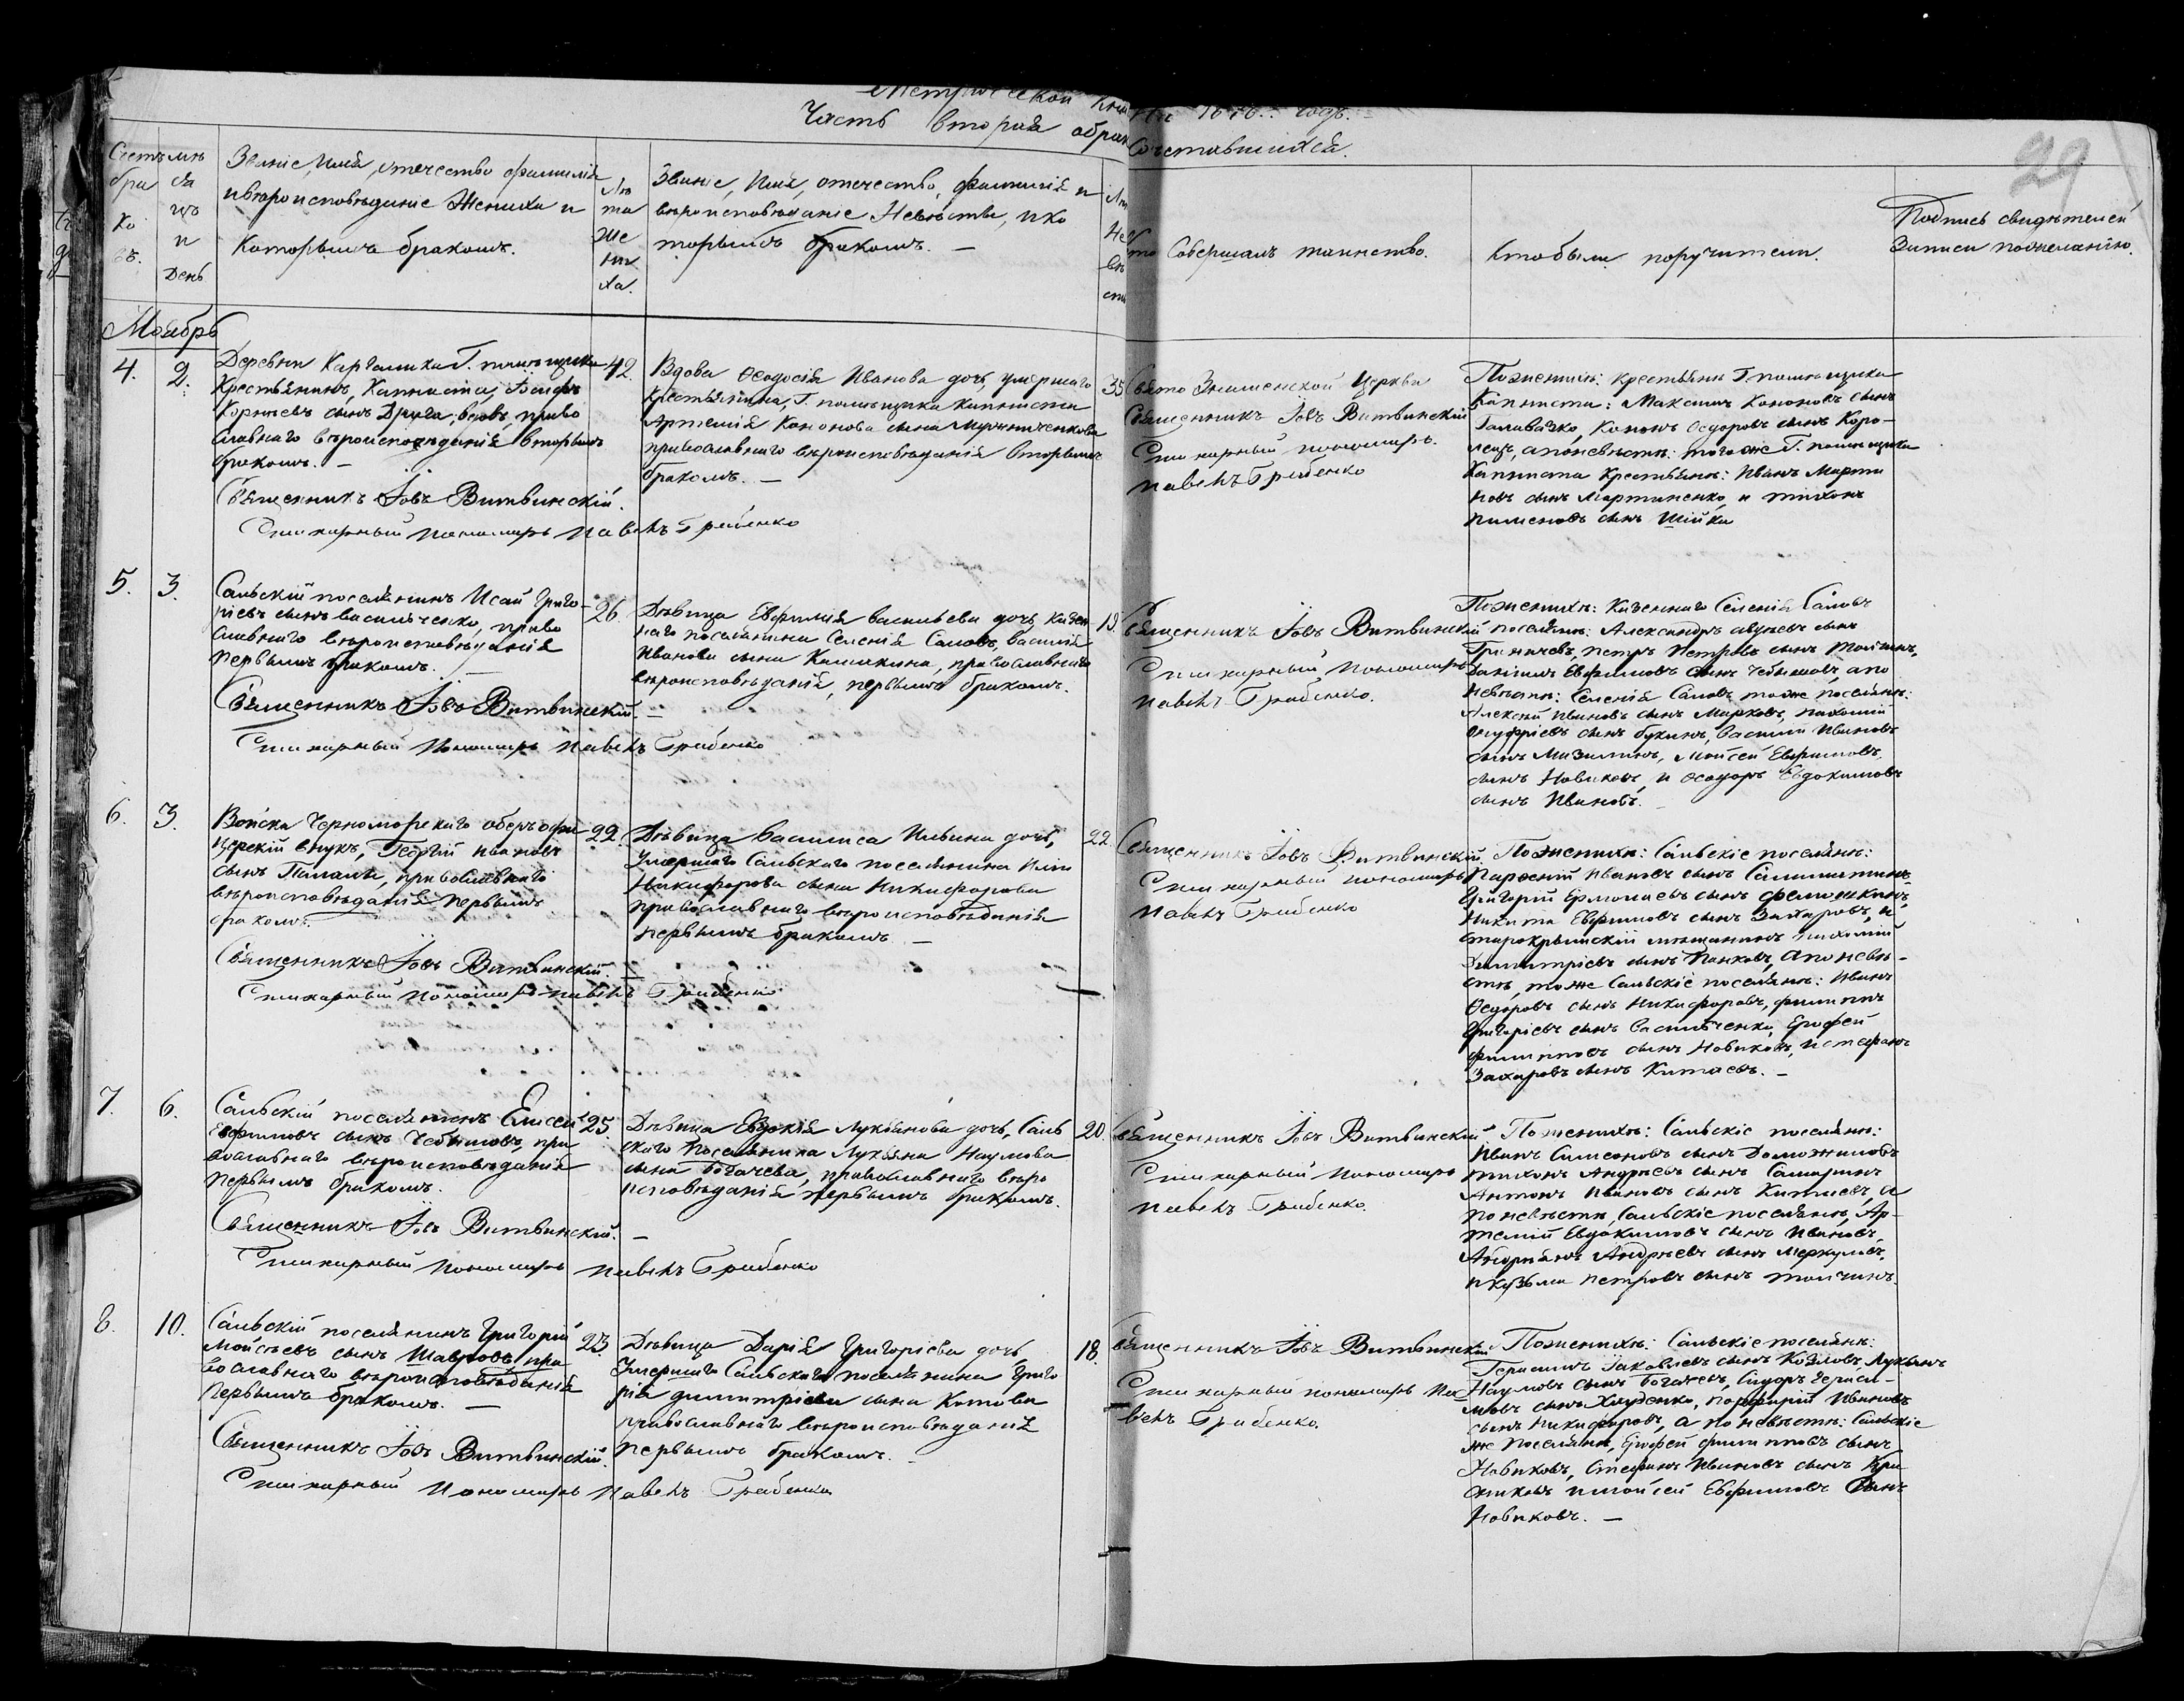 Метрической Кни
Часть вторая о брак
На 18 годъ.
Сочетавшихся.
29
Счетъ бра ко въ.
мѣ ся цъ и день
Званіе, Имя, отечество фамилія
и вѣроисповѣданіе Жениха и
Которымъ бракомъ.
Лѣ та же ни ха.
Званіе, Имя, отечество, фамилія и
вѣроисповѣданіе Невѣсты, и ко
торымъ бракомъ. —
Лѣ Не вѣ сты
Кто Совершалъ таинство.
Кто были поручители.
Подпись свидѣтелей
Записи по желанію.
Ноябрь
4. 2.
Деревни Г. помѣщика
Крестьянинъ, Капниста,
Корнѣевъ сынъ право
славнаго вѣроисповѣданія вторымъ
бракомъ. —
Священникъ Іовъ Витвинскій.
Стихарный Пономарь Павелъ Грабенко
42.
Вдова Ѳеодосія Иванова дочь, умершаго
Крестьянина, Г. помѣщика Капниста
Артемія Кононова сына
православнаго вѣроисповѣданія вторымъ
бракомъ. —
35
Свято Знаменской Церкви
Священникъ Іовъ Витвинскій
Стихарный пономарь
Павелъ Грабенко
По женихѣ: крестьяне Г. помѣщика
Капниста: Максимъ Кононовъ сынъ
Кононъ Ѳедоровъ сынъ Коро-
а по невѣстѣ: того же Г. помѣщика
Капниста Крестьяне: Иванъ Марти
новъ сынъ Мартиненко, и Тихонъ
Пименовъ сынъ Шійка
5. 3.
Сальскій поселянинъ Исай Григо-
рьевъ сынъ Василченко, право
славнаго вѣроисповѣданія
первымъ бракомъ. —
Священникъ Іовъ Витвинскій. —
Стихарный Пономарь Павелъ Грабенко
26
Дѣвица Евфимія Васильева дочь, казен
наго поселянина Селенія Саловъ, Василія
Иванова сына Камикина, православнаго
вѣроисповѣданія, первымъ бракомъ.
19
Священникъ Іовъ Витвинскій
Стихарный Пономарь
Павелъ Грабенко.
По женихѣ: Казеннаго Селенія Саловъ
поселяне: Александръ сынъ
Петръ Петровъ сынъ
Евфимовъ сынъ Чебышовъ, а по
невѣстѣ: Селенія Саловъ тоже поселяне:
Алексѣй Ивановъ сынъ Марковъ, Пахомій
Онуфріевъ сынъ Букинъ, Василій Ивановъ
сынъ Мизилинъ, Мойсей Евфимовъ,
сынъ Новиковъ, и Ѳеодоръ Евдокимовъ
сынъ Ивановъ. —
6. 3.
Войска Черноморскаго оберъ офи
церскій внукъ, Георгій Ивановъ
сынъ православнаго
вѣроисповѣданія первымъ
бракомъ.
Священникъ Іовъ Витвинскій. —
Стихарный Пономарь Павелъ Грабенко
22.
Дѣвица Василиса Ильина дочь,
Умершаго Сальскаго поселянина Ильи
Никифорова сына Никифорова
православнаго вѣроисповѣданія
первымъ бракомъ —
22.
Священникъ Іовъ Витвинскій.
Стихарный пономарь
Павелъ Грабенко
По женихѣ: Сальскіе поселяне:
Ивановъ сынъ
Григорій Ермолаевъ сынъ
Никита Евфимовъ сынъ Захаровъ, и
старокрымскій мѣщанинъ Пахомій
Димитріевъ сынъ Панковъ, а по невѣ-
стѣ, тоже Сальскіе поселяне: Иванъ
Ѳедоровъ сынъ Никифоровъ, Филиппъ
Григоріевъ сынъ Василченко, Ерофей
Филипповъ сынъ Новиковъ, и Стефанъ
Захаровъ сынъ Китаевъ. —
7. 6.
Сальскій поселянинъ Елисей
Евфимовъ сынъ Чебышовъ, пра
вославнаго вѣроисповѣданія
первымъ бракомъ.
Священникъ Іовъ Витвинскій. —
Стихарный Пономарь Павелъ Грабенко
25.
Дѣвица Евдокія Лукьянова дочь, Саль
скаго поселянина Лукьяна Наумова
сына Богачева, православнаго вѣро
исповѣданія первымъ бракомъ.
20.
Священникъ Іовъ Витвинскій
Стихарный Пономарь
Павелъ Грабенко.
По женихѣ: Сальскіе поселяне:
Иванъ Симеоновъ сынъ Доможировъ
Тихонъ Андреевъ сынъ Самаринъ
Антонъ Ивановъ сынъ Китаевъ, а
по невѣстѣ, Сальскіе поселяне, Ар-
темій Евдокимовъ сынъ Ивановъ,
Андріянъ Андреевъ сынъ Меркуловъ,
и Кузьма Петровъ сынъ
8. 10.
Сальскій поселянинъ Григорій
Мойсѣевъ сынъ Шавровъ, пра
вославнаго вѣроисповѣданія
первымъ бракомъ. —
Священникъ Іовъ Витвинскій.
Стихарный Пономарь Павелъ Грабенко
23
Дѣвица Дарія Григорьева дочь,
Умершаго Сальскаго поселянина Григо
рія Димитріева сына Котова
православнаго вѣроисповѣданія
первымъ бракомъ. —
18.
Священникъ Іовъ Витвинскій
Стихарный пономарь Па
велъ Грабенко.
По женихѣ: Сальскіе поселяне:
Герасимъ Іаковлевъ сынъ Козловъ, Лукьянъ
Наумовъ сынъ Богачевъ, Сидоръ Гераси-
мовъ сынъ Порфирій Ивановъ
сынъ Никифоровъ, а по невѣстѣ: Сальскіе
же поселяне, Ерофей Филипповъ сынъ
Новиковъ, Стефанъ Ивановъ сынъ
и Мойсей Евфимовъ сынъ
Новиковъ. —